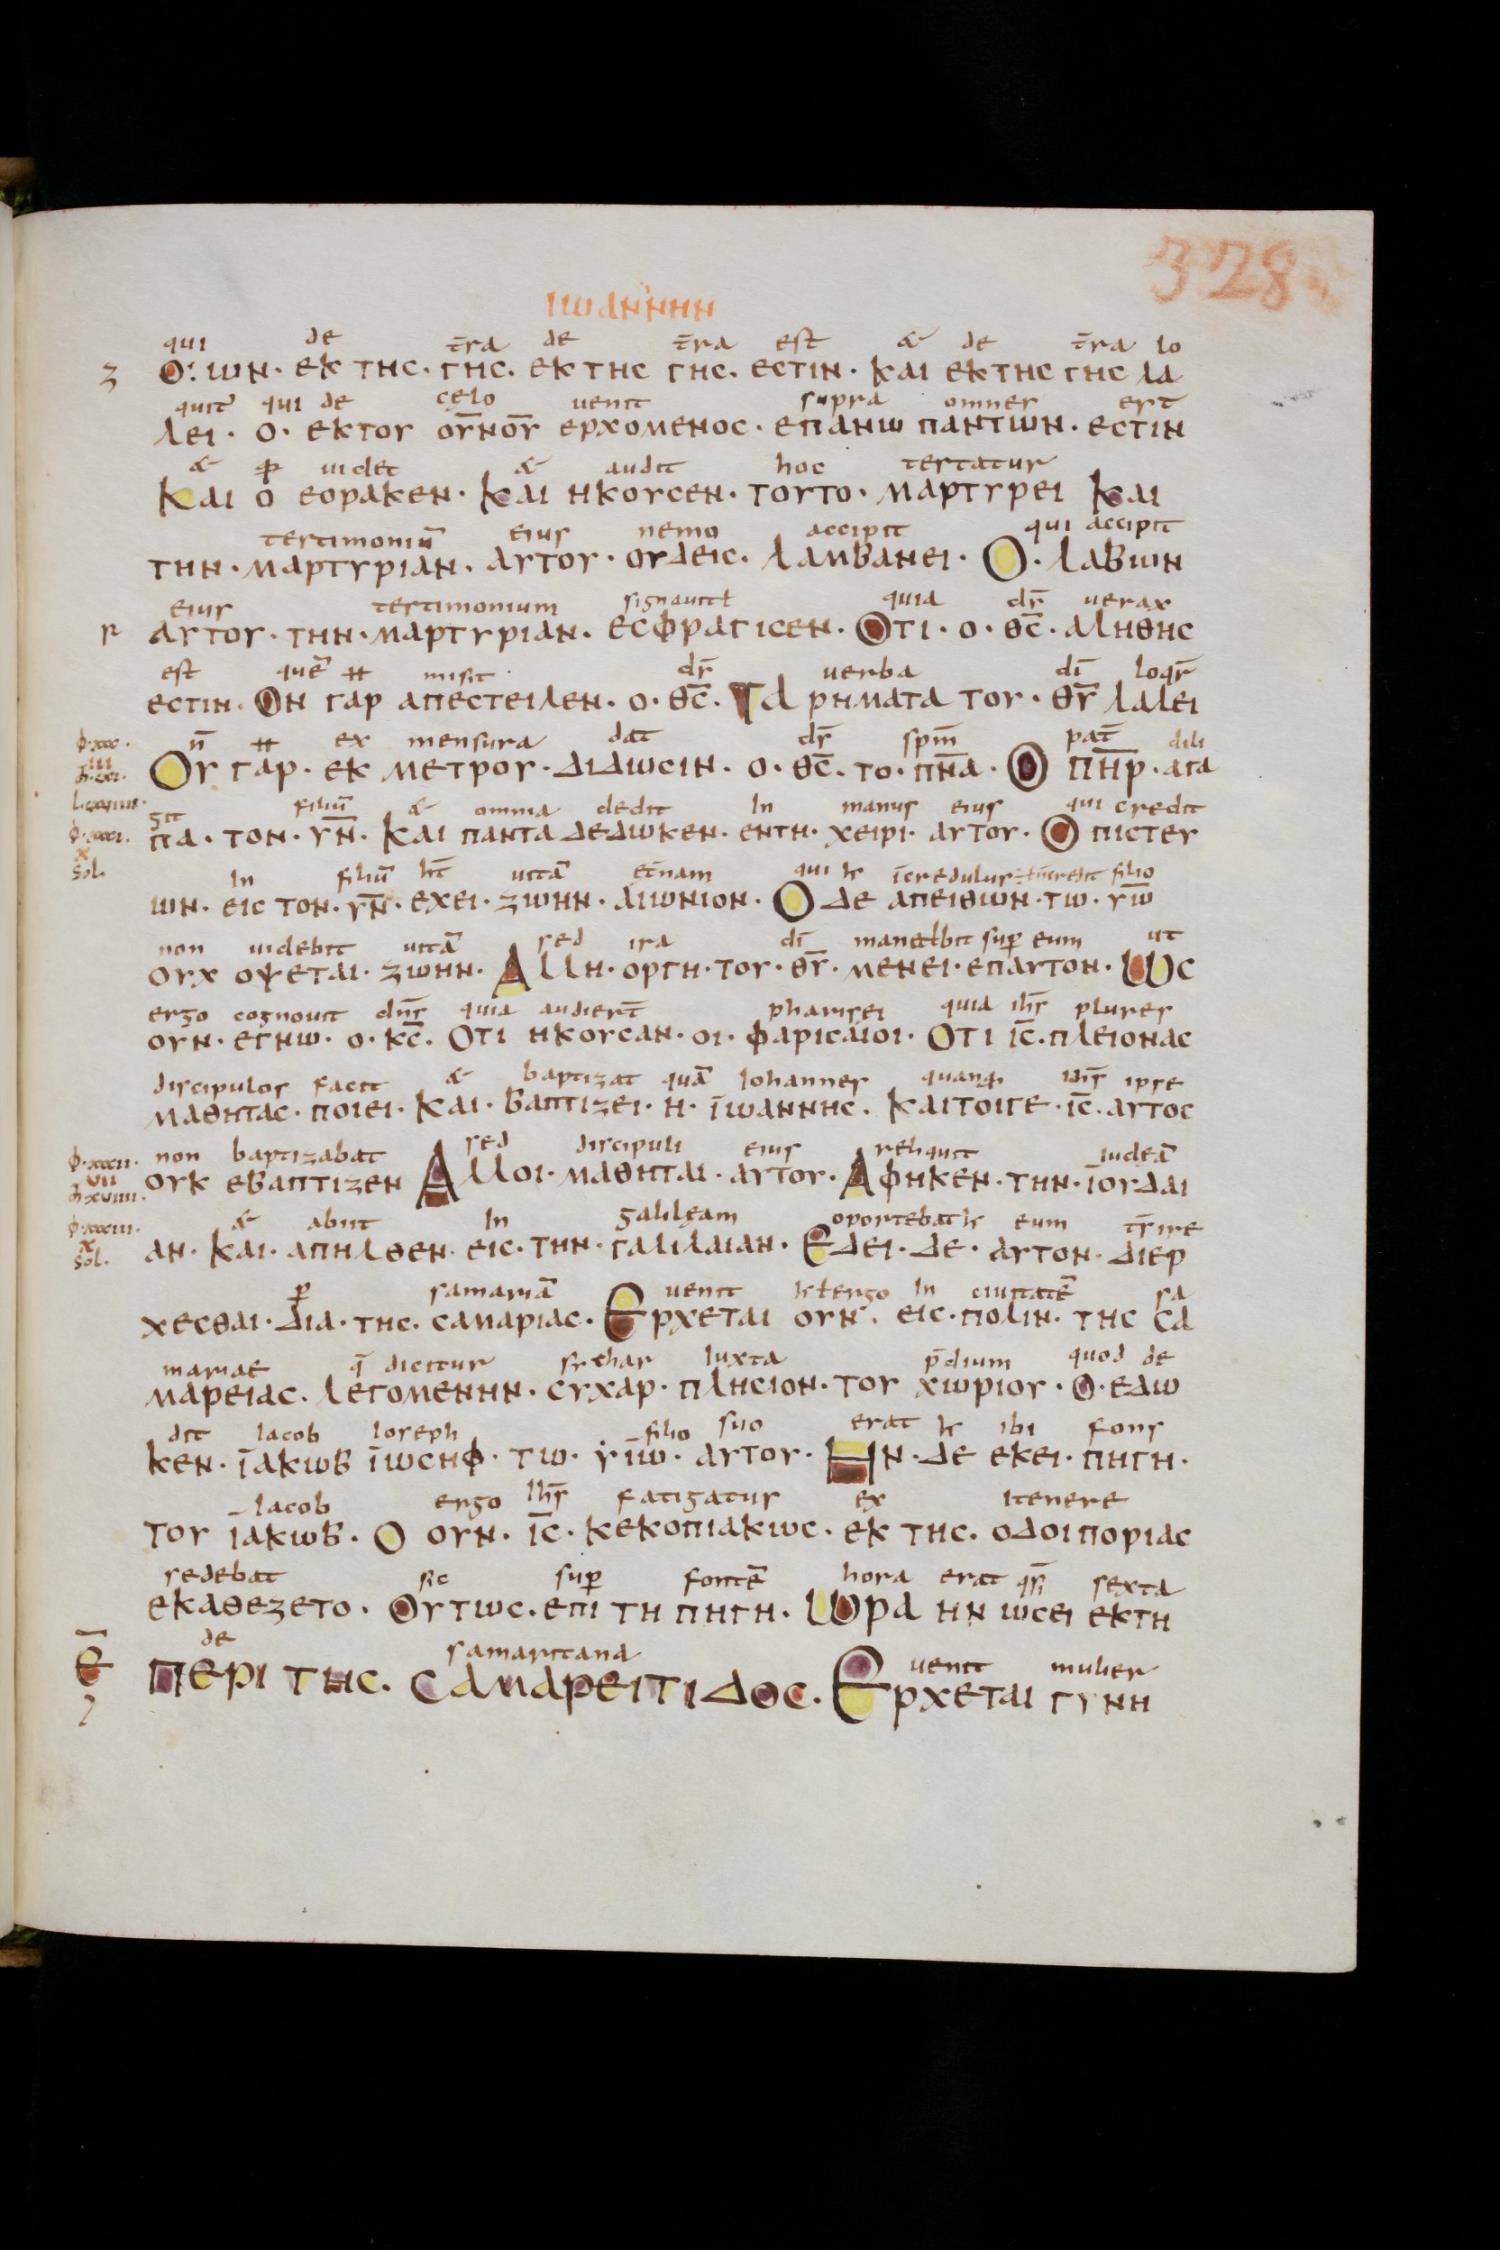 328
ιωαννην
qui de t̄ra de t̄ra est & de t̄ra lo
Ο: ων· εκ της· γης· εκ της γης· εστιν· και εκ της γης λα
quit᷑ qui de cęlo uenit supra omnes est
λει· ο· εκτου ου̅νου̅ ερχομενος· επανω παντων· εστιν
& uidet & audit hoc testatur
και ο εορακεν· και ηκουσεν· τουτο· μαρτυρει και
testimoniū eius nemo accipit qui accipit
την· μαρτυριαν· αυτου· ουδεις· λαμβανει· Ο· λαβων
eius testimonium signauit quia ds̄ uerax
αυτου· την· μαρτυριαν· εσφραγισεν· Οτι· ο· θς̅· αληθης
est quē misit ds̄ uerba dī loqr̄
εστιν· Ον γαρ απεστειλεν· ο· θς̅· Τα ρηματα του· θυ̅ λαλει
n̄ ex mensura dat ds̄ spm̄ pat̄ dili
Ου γαρ· εκ μετρου· διδωσιν· ο· θς̅· το· πν̅α· Ο πηρ̅· αγα
git filiū & omnia dedit In manus eius qui credit
πα· τον· υν̅· και παντα δεδωκεν· εντη· χειρι· αυτου· Ο πιστευ
sol.
In filiū ht̄ uitā et̄nam qui incredulus filio
ων· εις τον· υν̅· εχει· ζωην· αιωνιον· Ο δε απειθων· τω· υω̅
non uidebit uitā sed ira dī sup eum ut
ουχ οψεται· ζωην· Αλλη· οργη· του· θυ̅· μενει· επαυτον· Ως
ergo cognouit dn̄s quia audier̄t pharisei quia ih̄s plures
ουν· εγνω· ο· κς̅· Οτι ηκουσαν· οι· φαρισαιοι· Οτι ις̅· πλειονας
discipulos facit & baptizat quā Iohannes ih̄s ipse
μαθητας· ποιει· και· βαπτιζει· η· ιωαννης· καιτοιγε· ις̅· αυτος
non baptizabat sed discipuli eius reliquit iudeā
ουκ εβαπτιζεν Αλλοι· μαθηται· αυτου· Αφηκεν· την· ιουδαι
& abiit In galilęam oportebat eum t̄nsire
αν· και· απηλθεν· εις· την· γαλιλαιαν· Εδει· δε· αυτον· διερ
sol.
p samariā uenit ergo In ciuitatē sa
χεσθαι· δια· της· σαμαριας· Ερχεται ουν· εις· πολιν· της σα
mariae q̄ dicitur sychar Iuxta p̄dium quod de
μαρειας· λεγομενην· συχαρ· πλησιον· του χωριου· ο· εδω
dit Iacob Ioseph filio suo erat ibi fons
κεν· ιακωβ ιωσηφ· τω· υιω· αυτου· Ην· δε εκει· πηγη·
Iacob ergo Ih̄s fatigatus ex Itenere
του ιακωβ· Ο ουν· ις̅· κεκοπιακως· εκ της· οδοιποριας
sedebat sic sup fontē hora erat qsi sexta
εκαθεζετο· Ουτως· επι τη πηγη· Ωρα ην ωσει εκτη
de samaritana uenit mulier
Ε̅ περι της· σαμαρειτιδος· Ερχεται γυνη